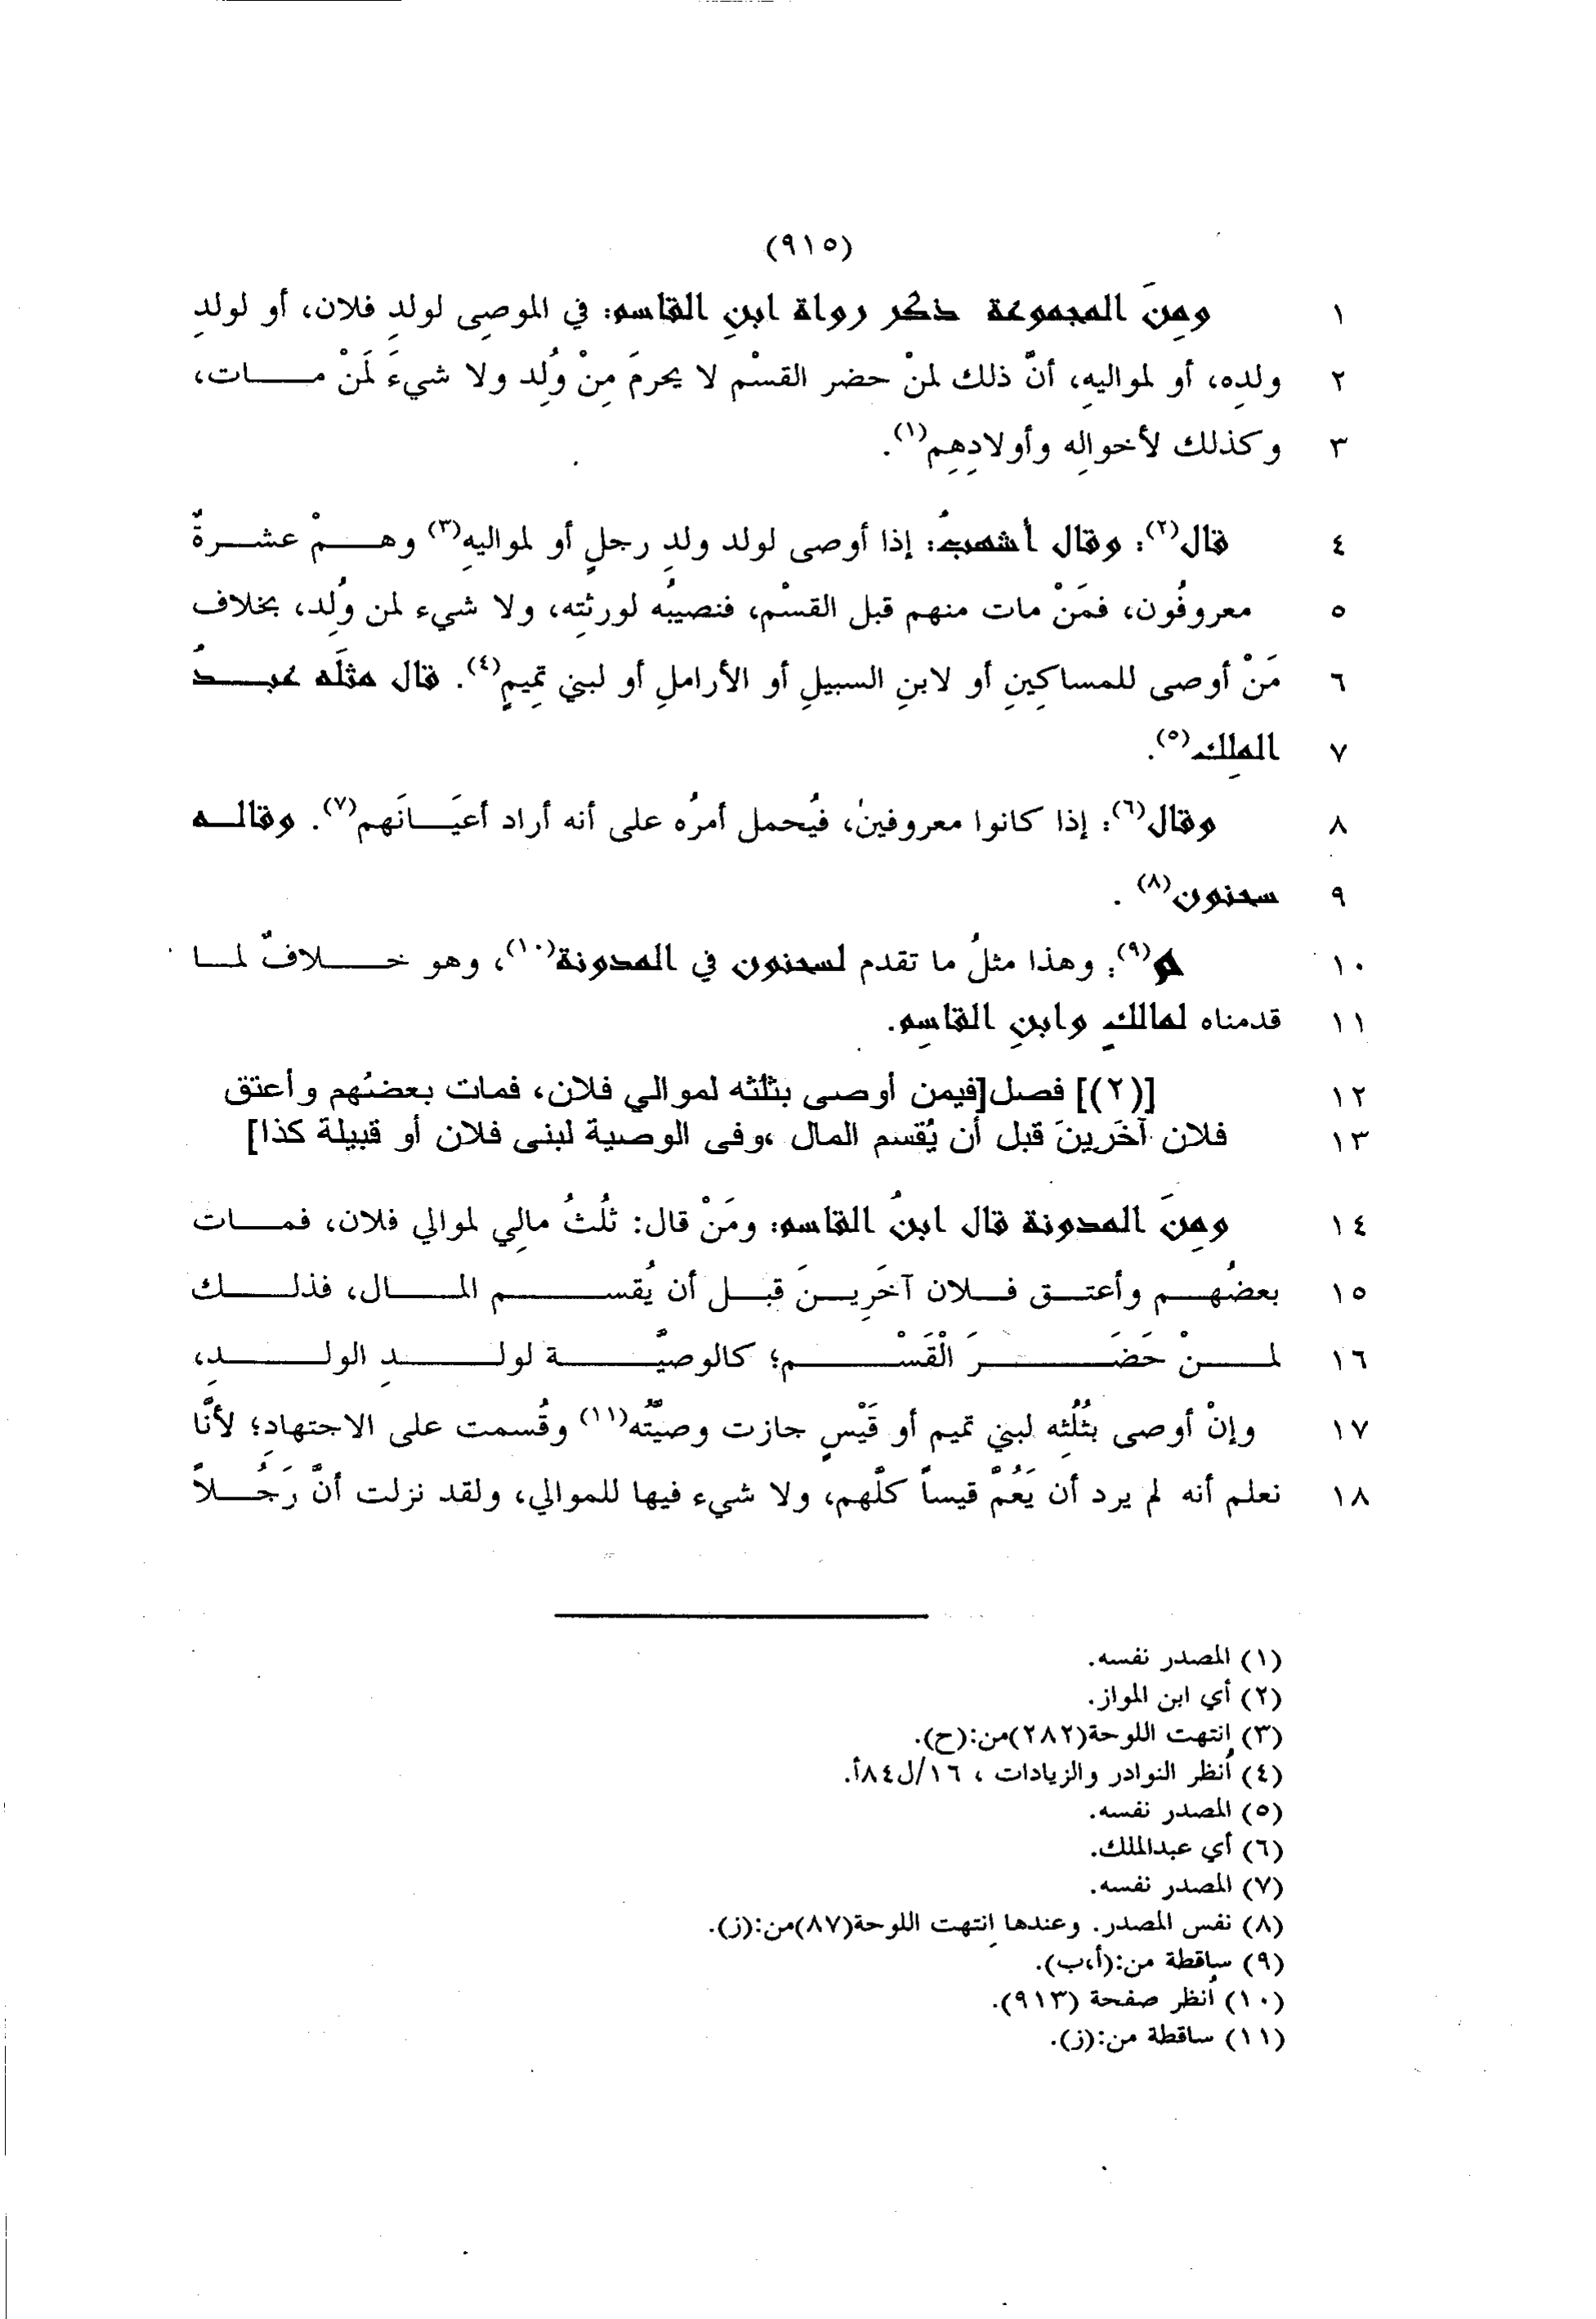 (٩١٥)
١ ومِنَ المجموعة ذكر رواة ابنِ القاسم: في الموصِى لولدِ فلان، أو لولدِ
٢ ولدِه، أو لمواليهِ، أنَّ ذلك لمنْ حضر القسْم لا يحرمَ مِنْ وُلِد ولا شيءَ لَمنْ مـــات،
٣ وكذلك لأخوالِه وأولادِهِم(١).
٤ قال(٢): وقال أشهبُ: إذا أوصى لولد ولدِ رجلٍ أو لمواليهِ(٣) وهـــمْ عشـــرةٌ
٥ معروفُون، فمَنْ مات منهم قبل القسْم، فنصيبُه لورثتِه، ولا شيء لمن وُلِد، بخلاف
٦ مَنْ أوصى للمساكِينِ أو لابنِ السبيلِ أو الأراملِ أو لبني تمِيمٍ(٤). قال مثلَه عبـــدُ
٧ الملِك(٥).
٨ وقال(٦): إذا كانوا معروفينُ، فيُحمل أمرُه على أنه أراد أعيَـــانَهم(٧). وقالـــه
٩ سحنون(٨) .
١٠ م(٩): وهذا مثلُ ما تقدم لسحنون في المدونة(١٠)، وهو خـــلافٌ لمـــا
١١ قدمناه لمالكٍ وابنِ القاسِم.
١٢ [(٢)] فصل[فيمن أوصى بثلثه لموالي فلان، فمات بعضُهم وأعتق
١٣ فلان آخَرينَ قبل أن يُقسم المال ،وفى الوصية لبنى فلان أو قبيلة كذا]
١٤ ومِنَ المدونة قال ابنُ القاسم: ومَنْ قال: ثلُثُ مالِي لموالي فلان، فمـــات
١٥ بعضُهـــم وأعتـــق فـــلان آخَرِيـــنَ قبـــل أن يُقســـم المـــال، فذلـــك
١٦ لمـــنْ حَضَـــرَ الْقَسْـــم؛ كالوصيَّـــة لولـــدِ الولـــدِ،
١٧ وإنْ أوصى بثُلُثِه لبني تميم أو قَيْسٍ جازت وصيَّتُه(١١) وقُسمت على الاجتهادِ؛ لأنَّا
١٨ نعلم أنه لم يرد أن يَعُمَّ قيساً كلَّهم، ولا شيء فيها للموالي، ولقد نزلت أنَّ رَجُـــلاً
(١) المصدر نفسه.
(٢) أي ابن المواز.
(٣) إنتهت اللوحة(٢٨٢)من:(ح).
(٤) أُنظر النوادر والزيادات ، ١٦/ل٨٤أ.
(٥) المصدر نفسه.
(٦) أي عبدالملك.
(٧) المصدر نفسه.
(٨) نفس المصدر. وعندها إنتهت اللوحة(٨٧)من:(ز).
(٩) ساقطة من:(أ،ب).
(١٠) أُنظر صفحة (٩١٣).
(١١) ساقطة من:(ز).